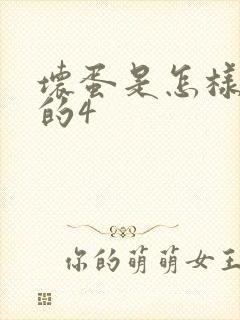 壞蛋是怎樣
的4
你的萌萌女王